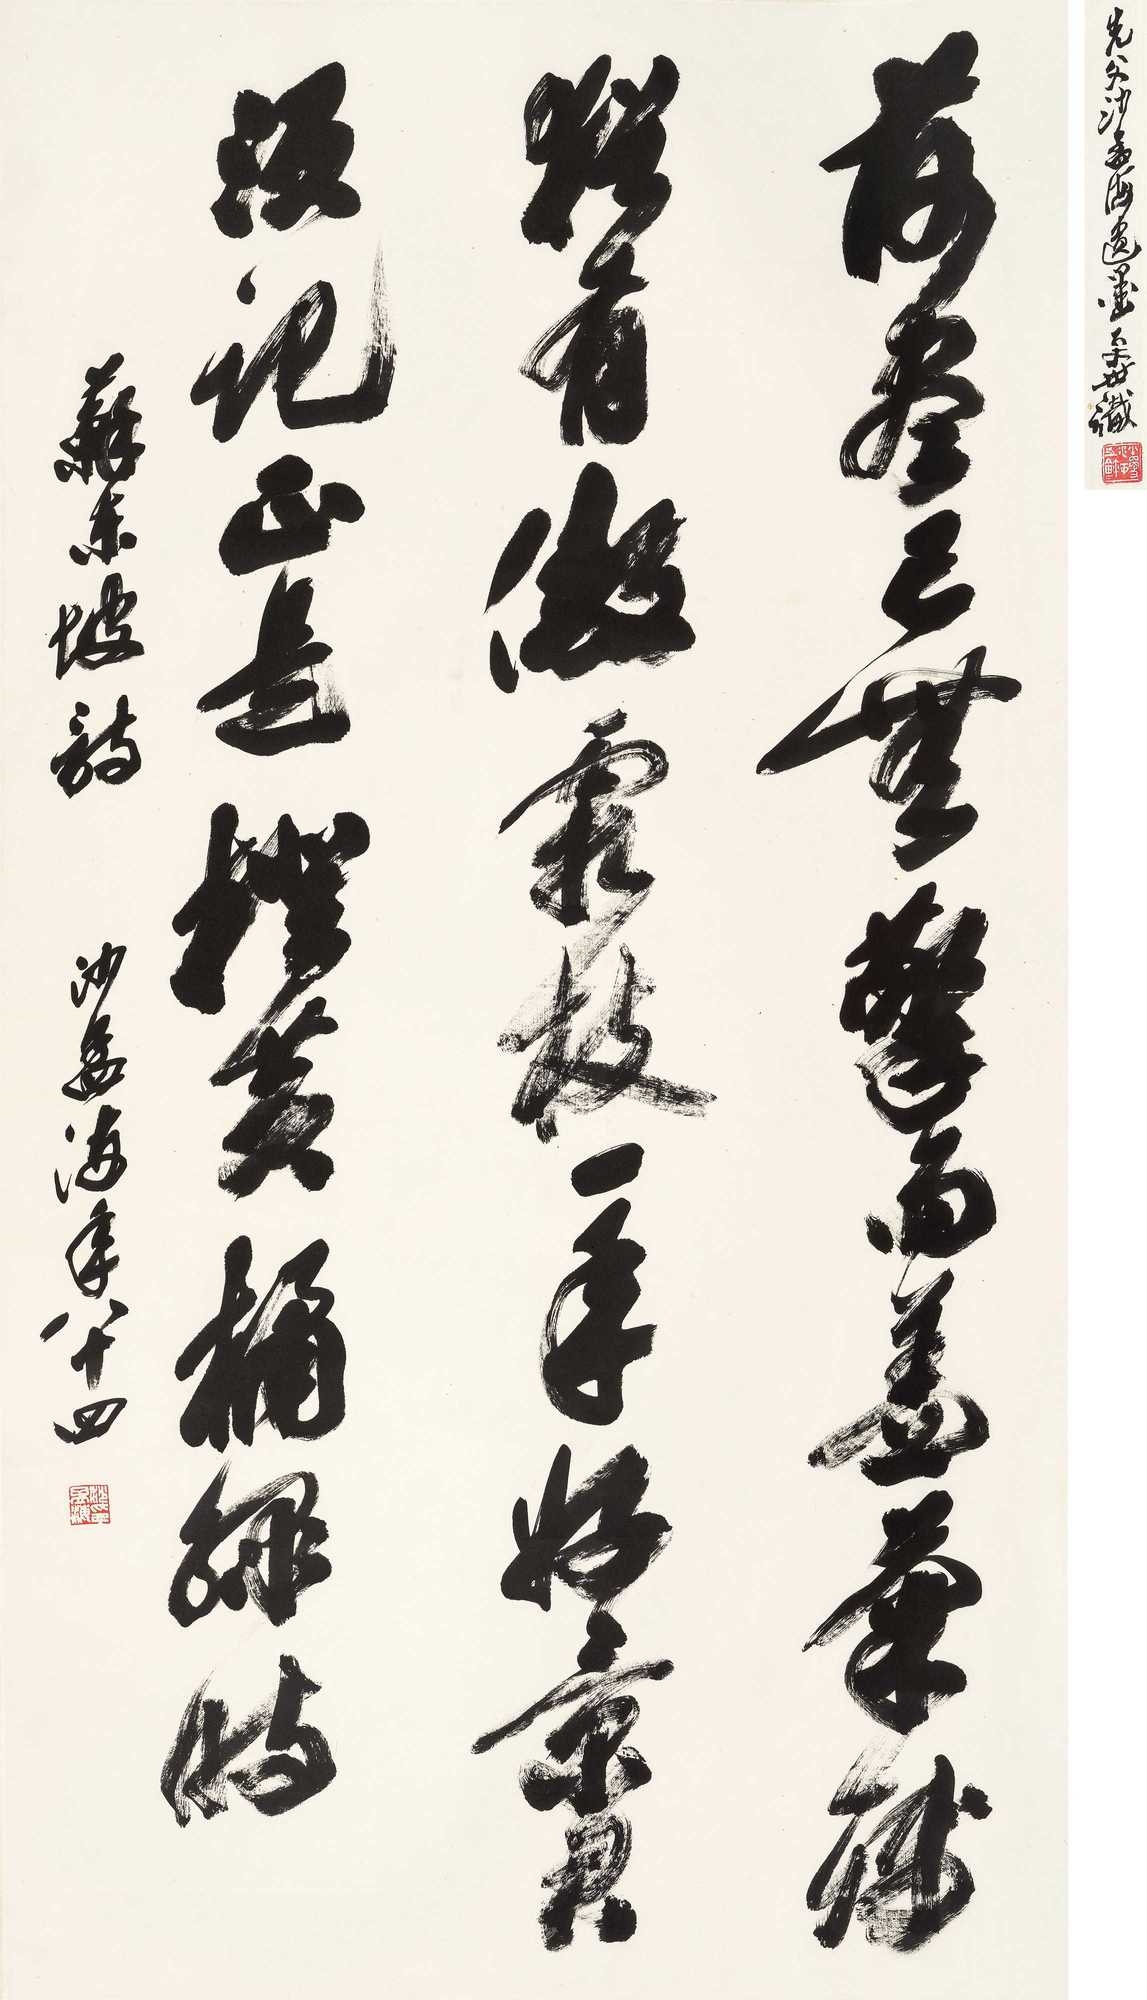 先父沙孟海遺墨 更世識
荷盡已無擎雨蓋菊殘
猶有傲霜枝一年好景君
須記正是橙黃橘綠時
蘇東坡詩 沙孟海年八十四